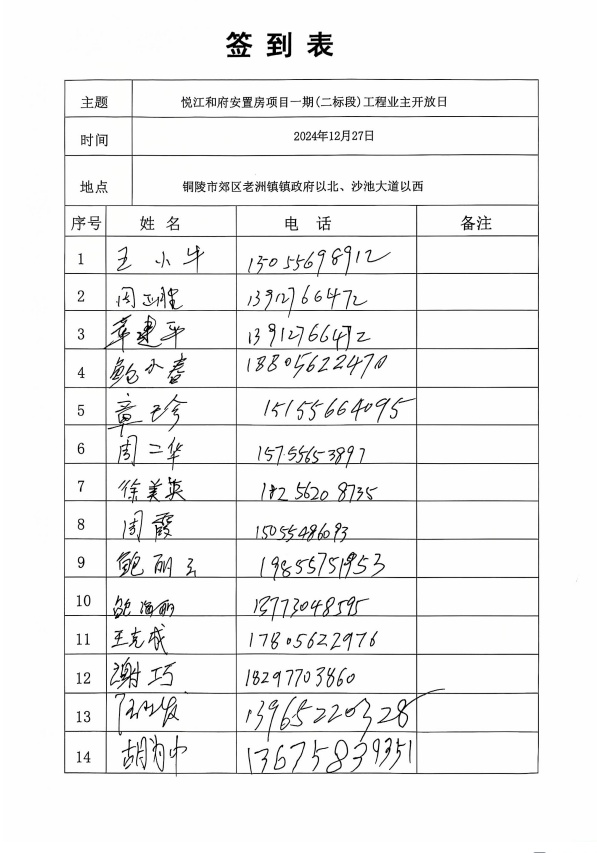 签到表
主题 悦江和府安置房项目一期(二标段)工程业主开放日
时间 2024年12月27日
地点 铜陵市郊区老洲镇镇政府以北、沙池大道以西
序号 姓名 电话 备注
1 王小牛 13055698912
2 周正胜 13912766472
3 章建平 13912766472
4 鲍小春 18805622470
5 章珍 15155664095
6 周二华 15755653897
7 徐美英 18256208735
8 周霞 15055486093
9 鲍丽云 19855751953
10 鲍海丽 13773048595
11 王克成 17805622976
12 谢巧 18297703860
13 13965220328
14 胡为中 13675839351